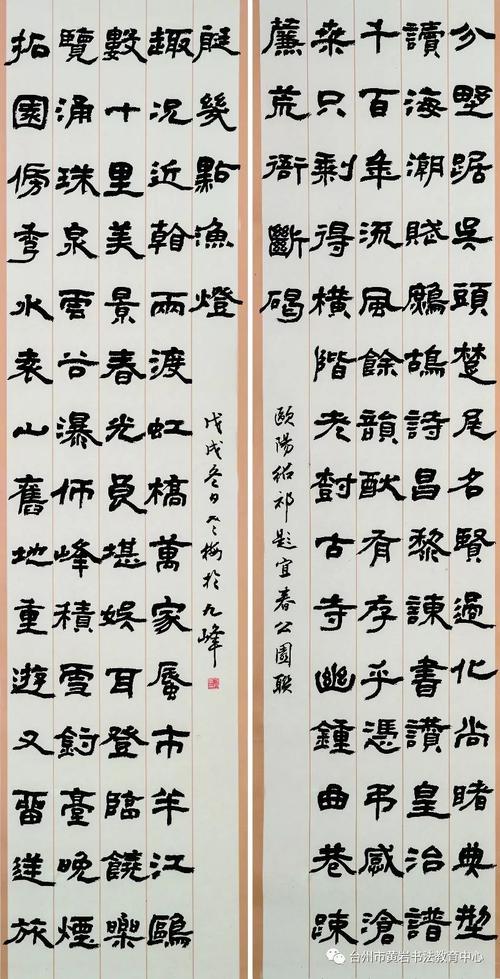 分野踞吳頭楚尾名賢過化尚睹典型
讀海潮賦鷓鴣詩昌黎諫書讚皇治譜
千百年流風餘韻猷有存乎憑弔感滄
来只剩得橫階老樹古寺幽鐘曲巷踈
簾荒衙斷碣
歐陽紹祁題宜春公園聯
拓園傍秀水袁山舊地重遊又留逆旅
覽涌珠泉雲谷瀑仰峰積雪釣臺晚煙
數十里美景春光良堪娛耳登臨饒樂
趣況近翰兩渡虹橋萬家蜃市半江鷗
艇幾點漁燈
戊戌冬日梅於九峰
台州市黄岩书法教育中心